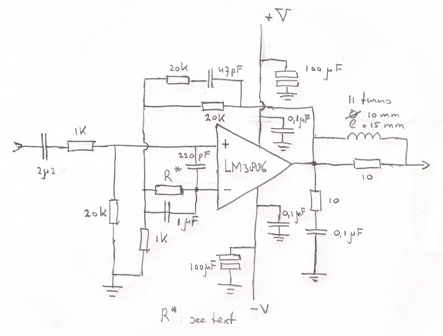 +V
20k
47pF
100µF
20k
0,1µF
11 turns
Ø 10mm
ℓ = 15 mm
1K
220pF
+
LM3886
2µ2
R*
-
10
20k
1µF
1K
0,1µF
10
0,1µF
100µF
-V
R* : see text